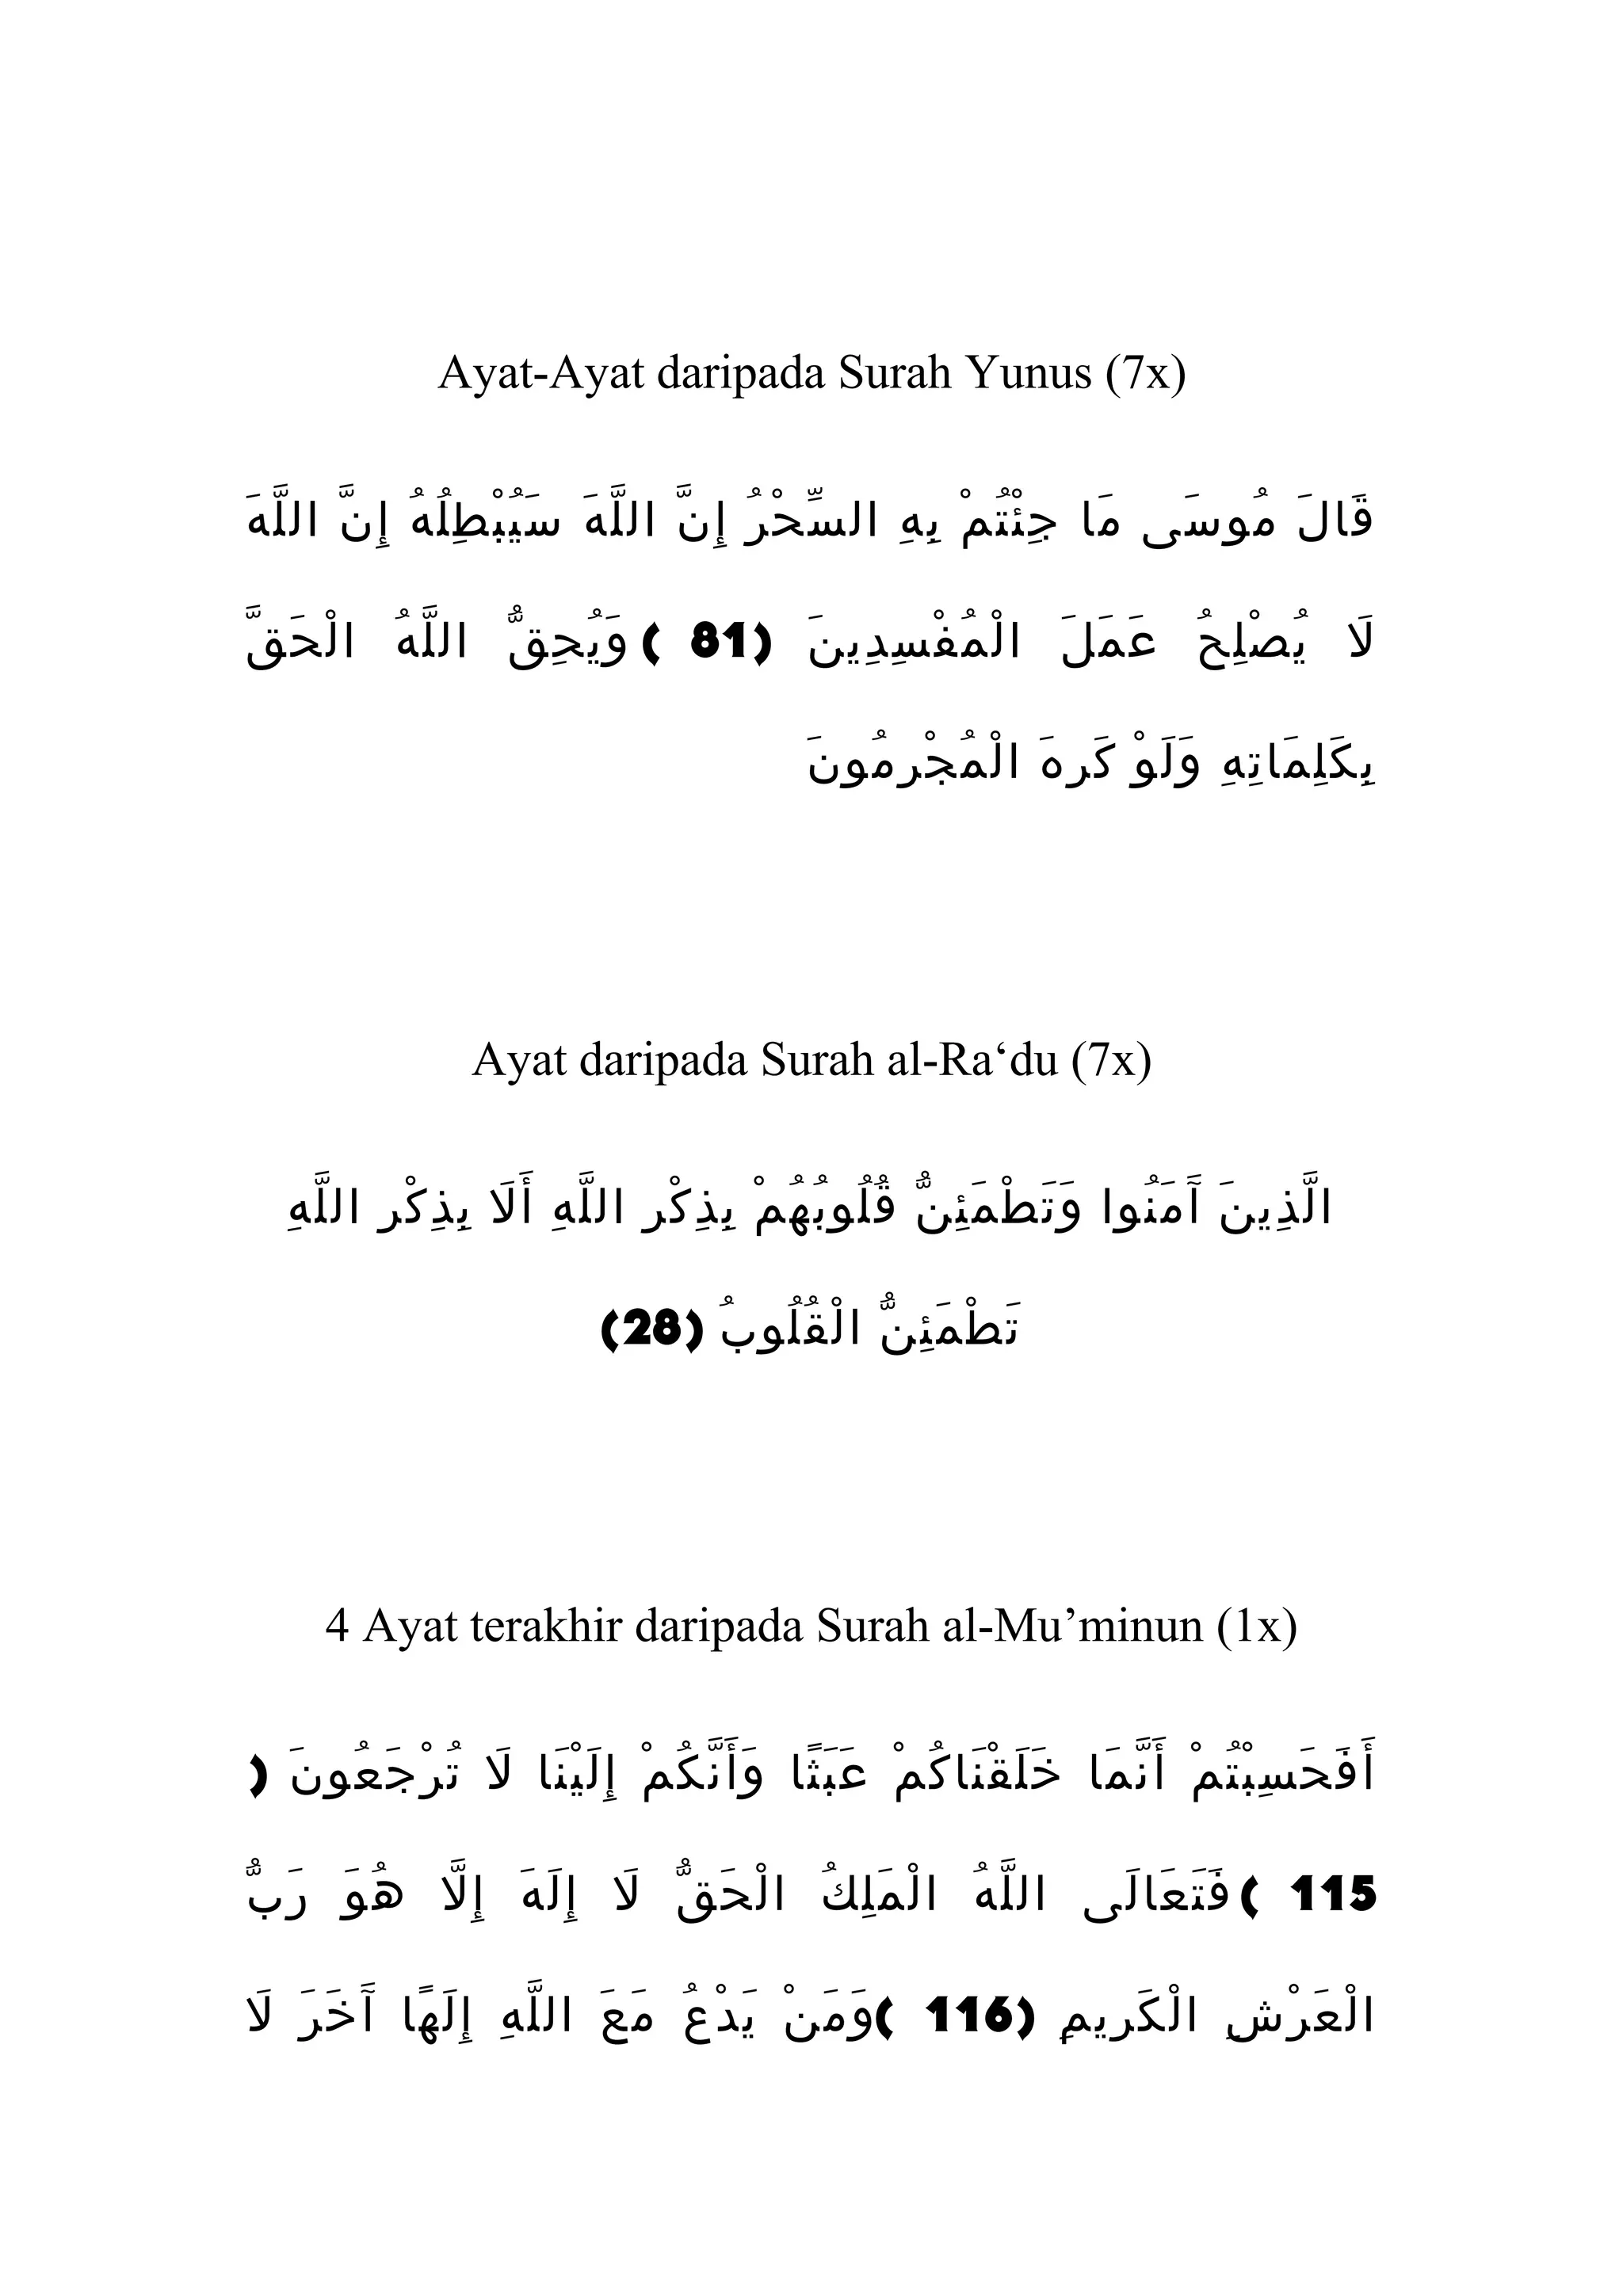 Ayat-Ayat daripada Surah Yunus (7x)
قَالَ مُوسَى مَا جِئْتُمْ بِهِ السِّحْرُ إِنَّ اللَّهَ سَيُبْطِلُهُ إِنَّ اللَّهَ
لَا يُصْلِحُ عَمَلَ الْمُفْسِدِينَ (81) وَيُحِقُّ اللَّهُ الْحَقَّ
بِكَلِمَاتِهِ وَلَوْ كَرِهَ الْمُجْرِمُونَ
Ayat daripada Surah al-Ra‘du (7x)
الَّذِينَ آَمَنُوا وَتَطْمَئِنُّ قُلُوبُهُمْ بِذِكْرِ اللَّهِ أَلَا بِذِكْرِ اللَّهِ
تَطْمَئِنُّ الْقُلُوبُ (28)
4 Ayat terakhir daripada Surah al-Mu’minun (1x)
أَفَحَسِبْتُمْ أَنَّمَا خَلَقْنَاكُمْ عَبَثًا وَأَنَّكُمْ إِلَيْنَا لَا تُرْجَعُونَ (
115) فَتَعَالَى اللَّهُ الْمَلِكُ الْحَقُّ لَا إِلَهَ إِلَّا هُوَ رَبُّ
الْعَرْشِ الْكَرِيمِ (116) وَمَنْ يَدْعُ مَعَ اللَّهِ إِلَهًا آَخَرَ لَا